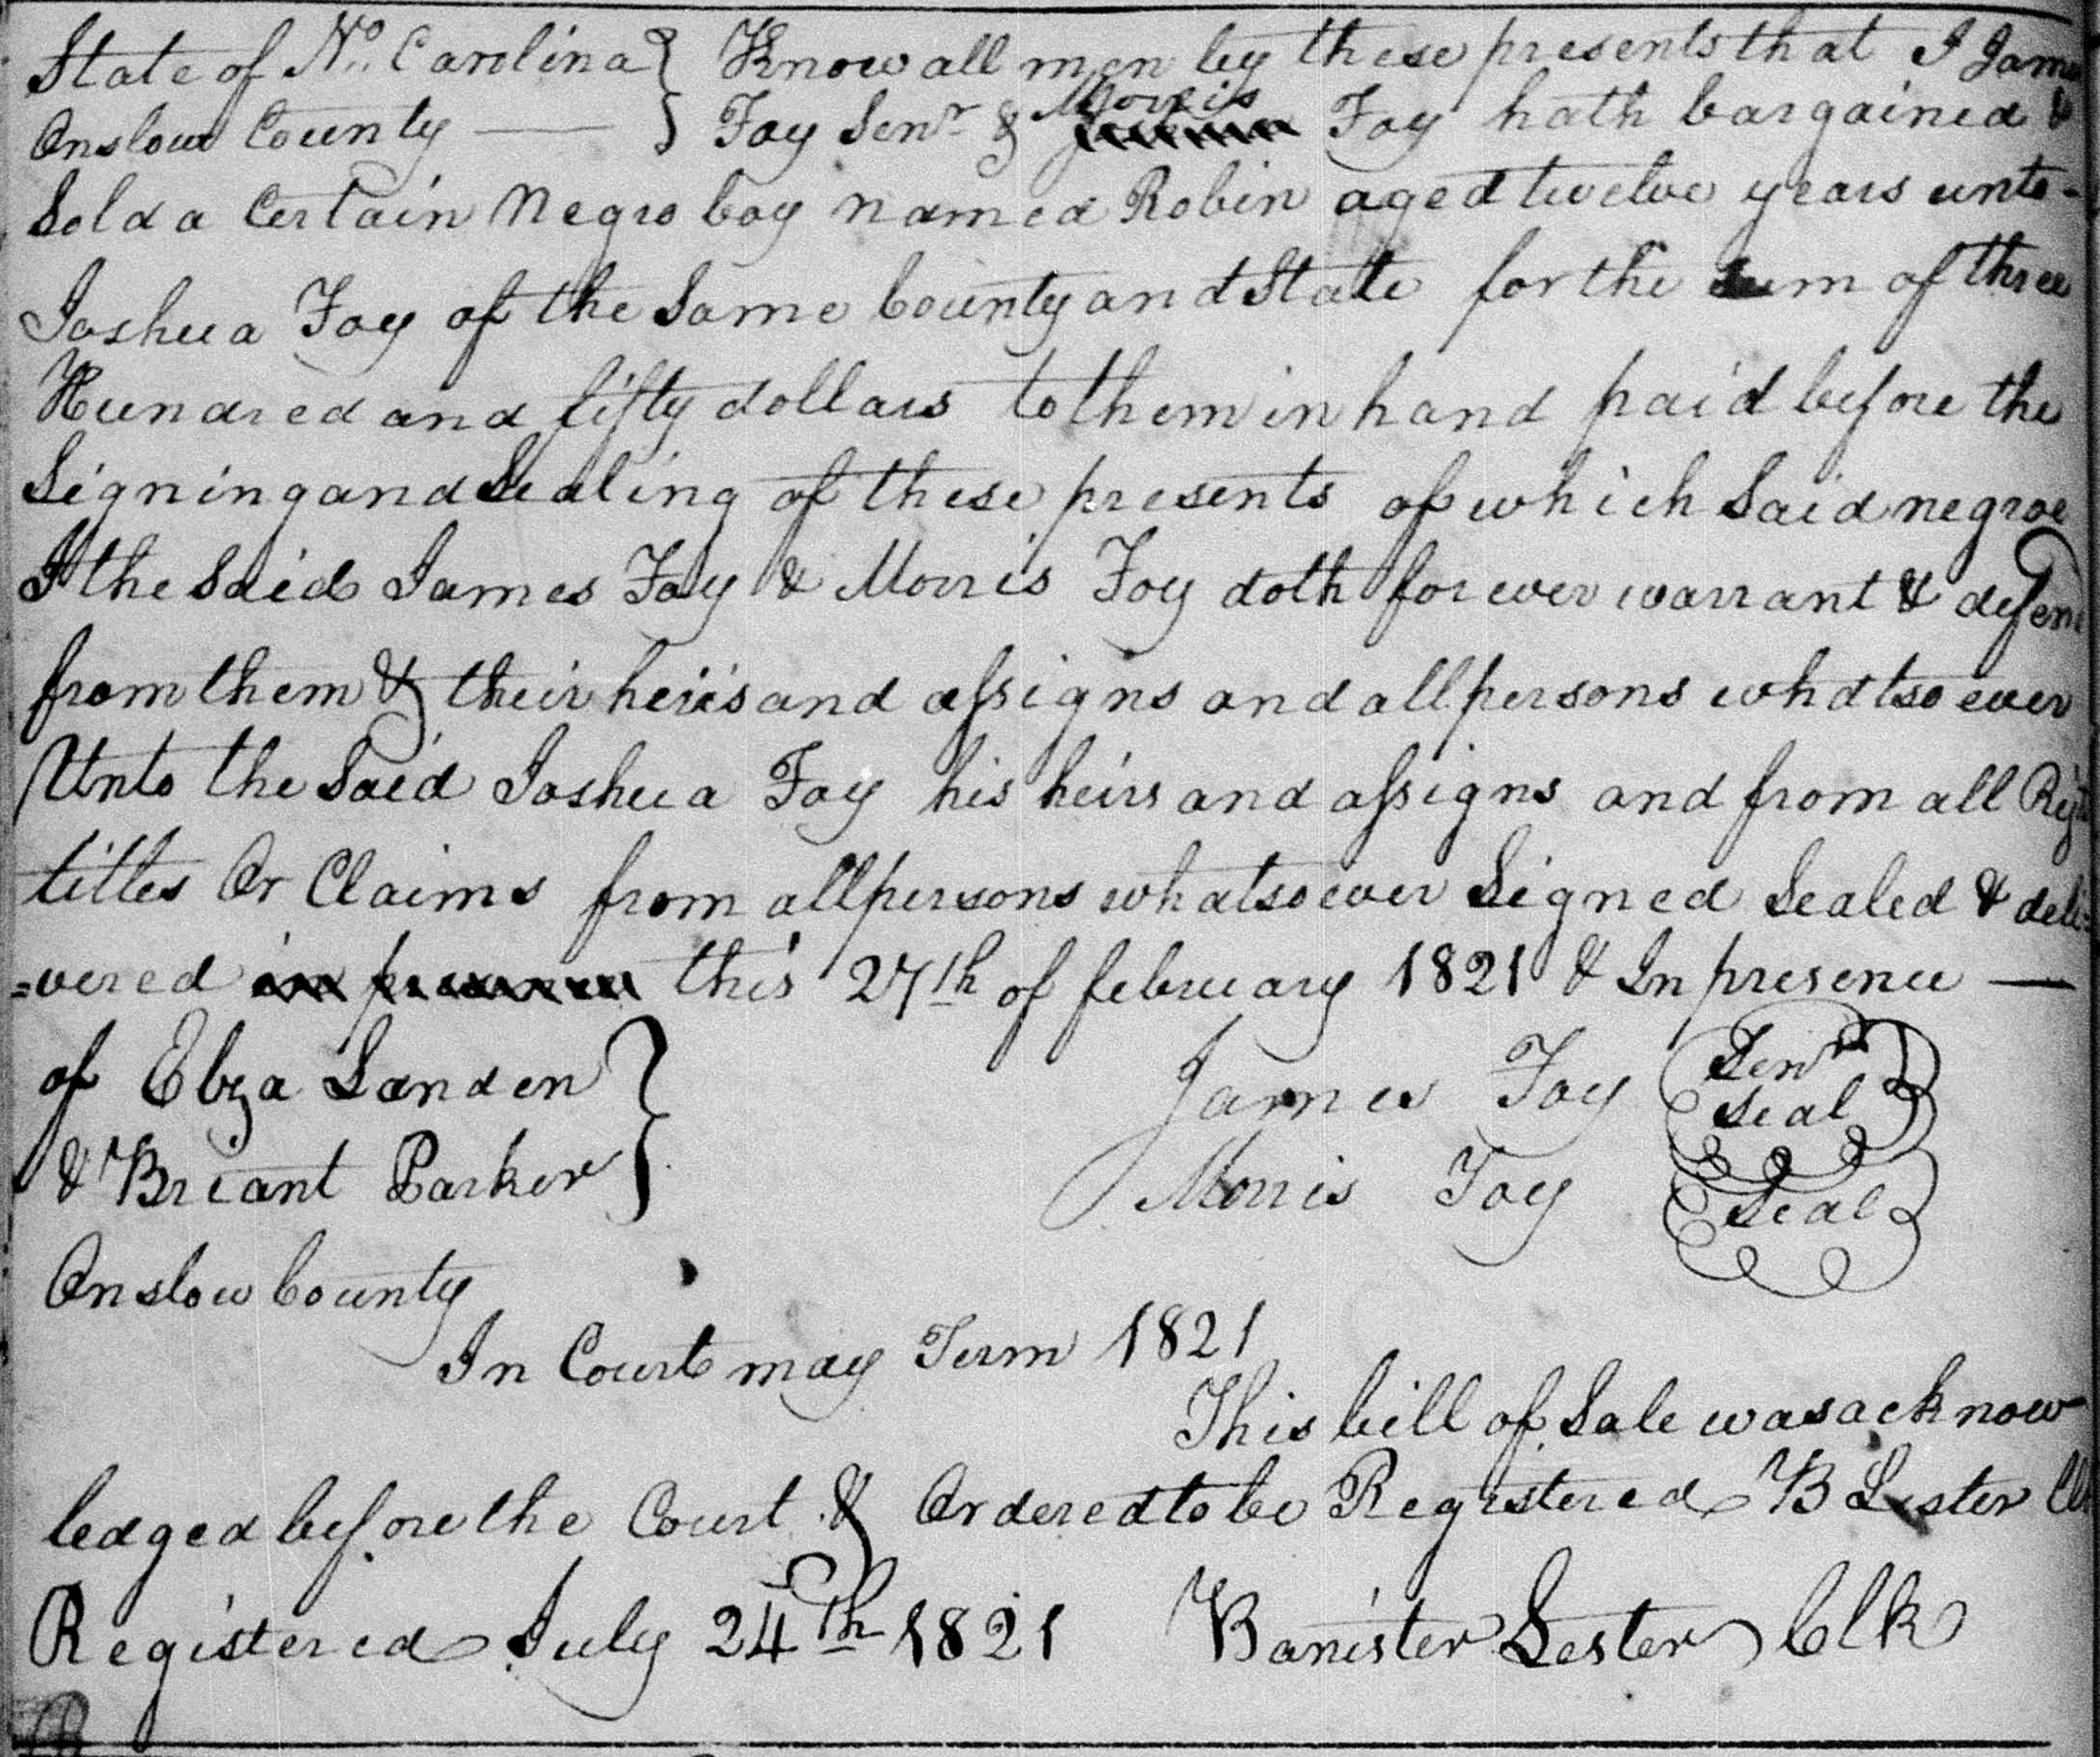 State of No. Carolina } Know all men by these presents that I James
Onslow County — } Foy Senr & Morris Foy hath bargained &
Sold a Certain Negro boy named Robin aged twelve years unto-
Joshua Foy of the Same County and State for the Sum of three
Hundred and fifty dollars to them in hand paid before the
Signing and Sealing of these presents of which Said negroe
I the Said James Foy & Morris Foy doth for ever warrant & defend
from them & their heirs and assigns and all persons whatso ever
Unto the Said Joshua Foy his heirs and assigns and from all Right
titles Or Claims from all persons whatsoever Signed Sealed & deli=
=vered in presence this 27th of february 1821 & In presence —
of Elza Landen } James Foy Senr Seal
& Briant Parker } Morris Foy Seal
Onslow County
In Court may Term 1821
This bill of Sale was acknow
ledged before the Court & Ordered to be Registered B Lester Clk
Registered July 24th 1821 Banister Lester Clk